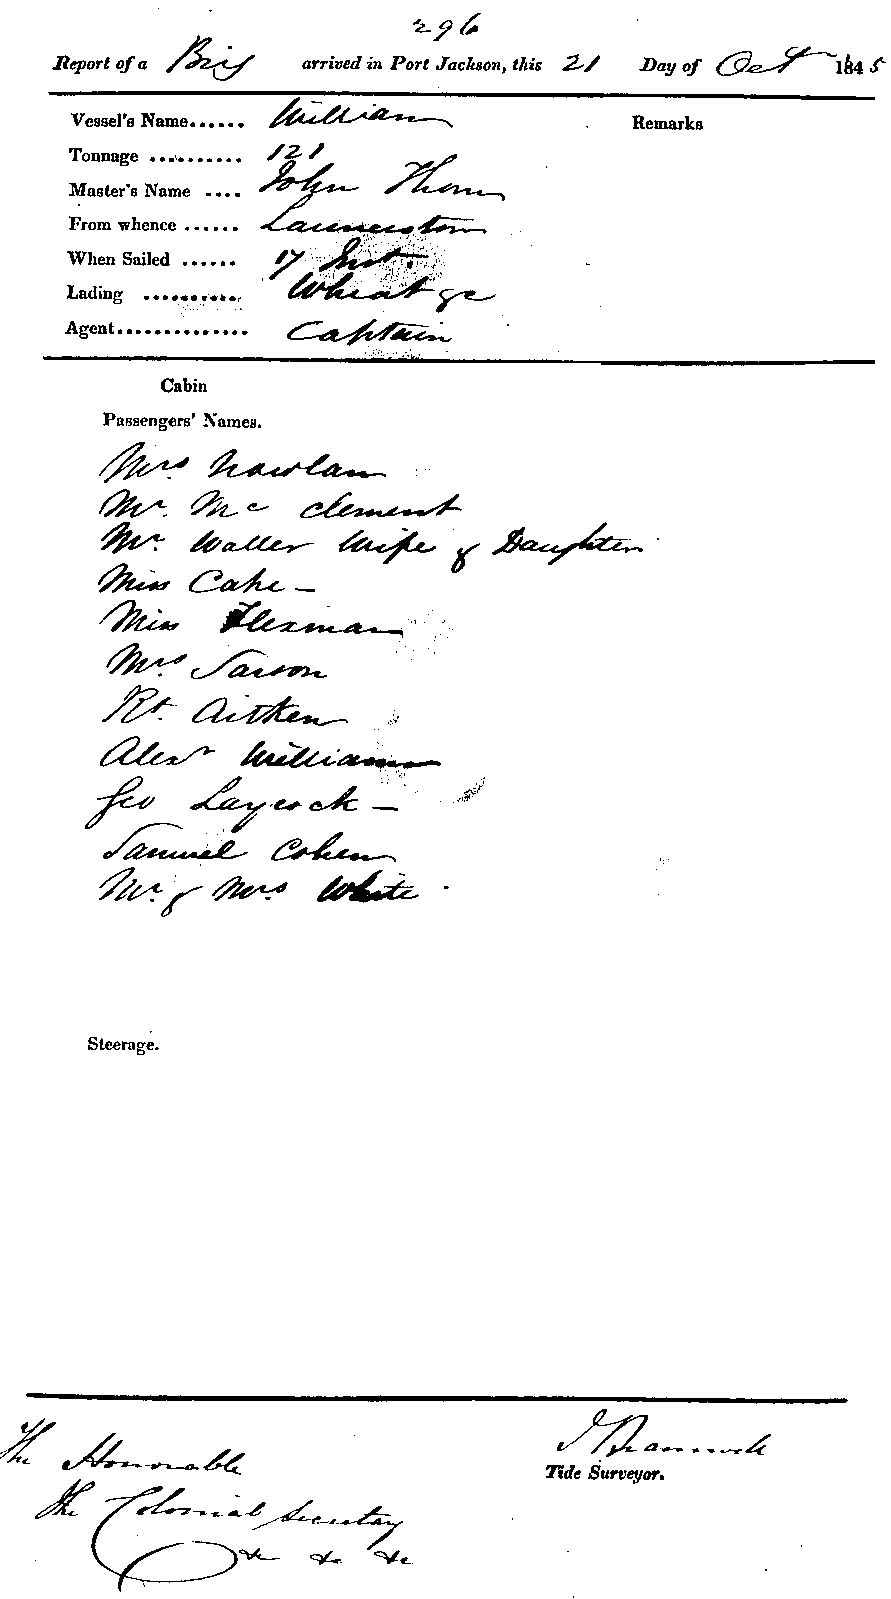 296
Report of a Brig arrived in Port Jackson, this 21 Day of Oct 1845
Vessel's Name...... William
Remarks
Tonnage .......... 121
Master's Name .... John Thom
From whence ...... Launceston
When Sailed ...... 17 Inst.
Lading .......... Wheat &c
Agent.............. Captain
Cabin
Passengers' Names.
Mrs Nowlan
Mr. Mc Clement
Mr. Waller Wife & Daughter
Miss Cake —
Miss Flexman
Mrs Sarson
Rt. Aitken
Alexr Williams
Geo Laycock —
Samuel Cohen
Mr. & Mrs White
Steerage.
The Honorable
The Colonial Secretary
&c &c &c
Tide Surveyor.